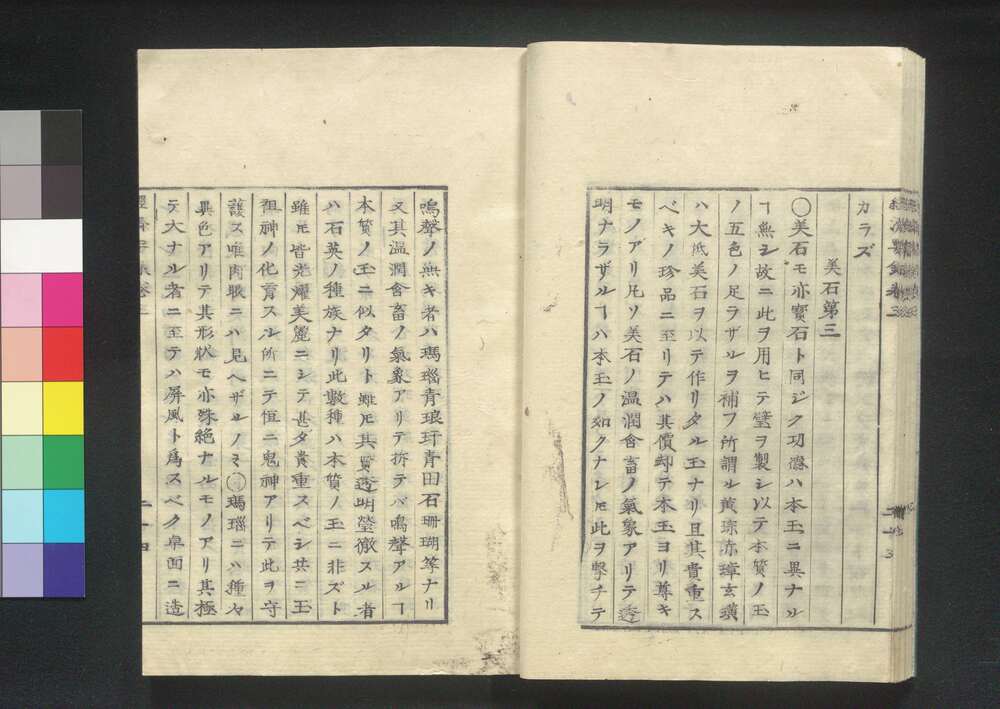 カラズ
美石第三
〇美石モ亦寳石ト同ジク功德ハ本玉ニ異ナル
ヿ無シ故ニ此ヲ用ヒテ璧ヲ製シ以テ本質ノ玉
ノ五色ノ足ラザルヲ補フ所謂ル黄琮赤璋玄璜
ハ大抵美石ヲ以テ作リタル玉ナリ且其貴重ス
ベキノ珍品ニ至リテハ其價却テ本玉ヨリ尊キ
モノアリ凡ソ美石ノ温潤含畜ノ氣象アリテ透
明ナラザルヿハ本玉ノ如クナレ𪜈此ヲ擊チテ
鳴聲ノ無キ者ハ瑪瑙青琅玕青田石珊瑚等ナリ
又其温潤含畜ノ氣象アリテ拆テバ鳴聲アルヿ
本質ノ玉ニ似タリト雖𪜈其質透明瑩徹スル者
ハ石英ノ種族ナリ此數種ハ本質ノ玉ニ非ズト
雖𪜈皆光耀美麗ニシテ甚ダ貴重スベシ共ニ玉
祖神ノ化育スル所ニテ恒ニ鬼神アリテ此ヲ守
護ス唯肉眼ニハ見ヘザルノミ〇瑪瑙ニハ種々
異色アリテ其形状モ亦殊絶ナルモノアリ其極
テ大ナル者ニ至テハ屏風ト爲スベク卓面ニ造